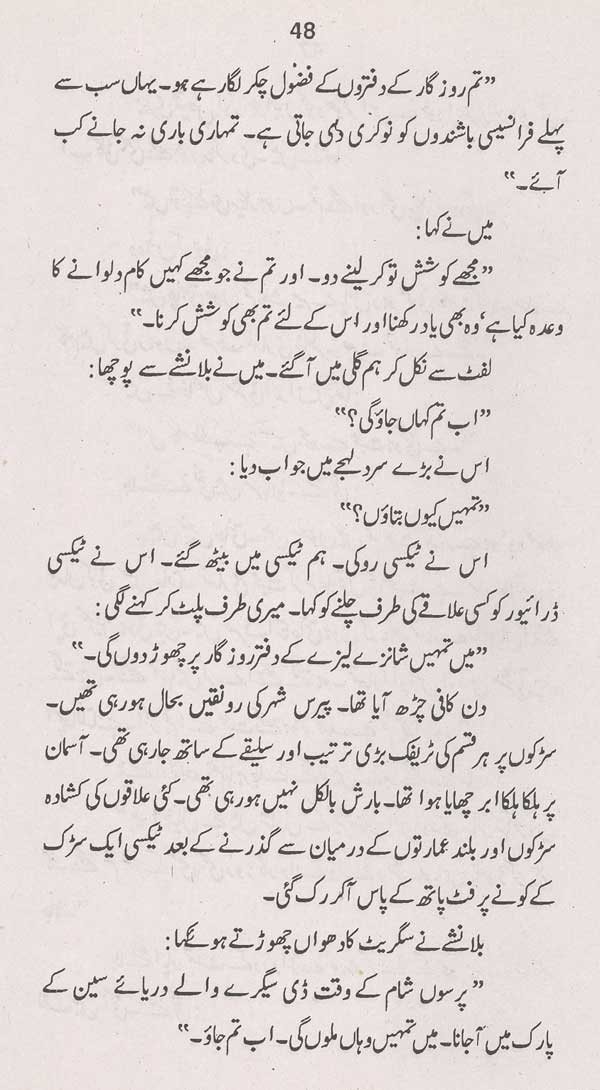 48
”تم روزگار کے دفتروں کے فضول چکر لگا رہے ہو۔ یہاں سب سے
پہلے فرانسیسی باشندوں کو نوکری دی جاتی ہے۔ تمہاری باری نہ جانے کب
آئے۔“
میں نے کہا:
”مجھے کوشش تو کر لینے دو۔ اور تم نے جو مجھے کہیں کام دلوانے کا
وعدہ کیا ہے‘ وہ بھی یاد رکھنا اور اس کے لئے تم بھی کوشش کرنا۔“
لفٹ سے نکل کر ہم گلی میں آ گئے۔ میں نے بلانشے سے پوچھا:
”اب تم کہاں جاؤ گی؟“
اس نے بڑے سرد لہجے میں جواب دیا:
”تمہیں کیوں بتاؤں؟“
اس نے ٹیکسی روکی۔ ہم ٹیکسی میں بیٹھ گئے۔ اس نے ٹیکسی
ڈرائیور کو کسی علاقے کی طرف چلنے کو کہا۔ میری طرف پلٹ کر کہنے لگی:
”میں تمہیں شانزے لیزے کے دفتر روزگار پر چھوڑ دوں گی۔“
دن کافی چڑھ آیا تھا۔ پیرس شہر کی رونقیں بحال ہو رہی تھیں۔
سڑکوں پر ہر قسم کی ٹریفک بڑی ترتیب اور سلیقے کے ساتھ جا رہی تھی۔ آسمان
پر ہلکا ہلکا ابر چھایا ہوا تھا۔ بارش بالکل نہیں ہو رہی تھی۔ کئی علاقوں کی کشادہ
سڑکوں اور بلند عمارتوں کے درمیان سے گذرنے کے بعد ٹیکسی ایک سڑک
کے کونے پر فٹ پاتھ کے پاس آ کر رک گئی۔
بلانشے نے سگریٹ کا دھواں چھوڑتے ہوئے کہا:
”پرسوں شام کے وقت ڈی سیگرے والے دریائے سین کے
پارک میں آ جانا۔ میں تمہیں وہاں ملوں گی۔ اب تم جاؤ۔“